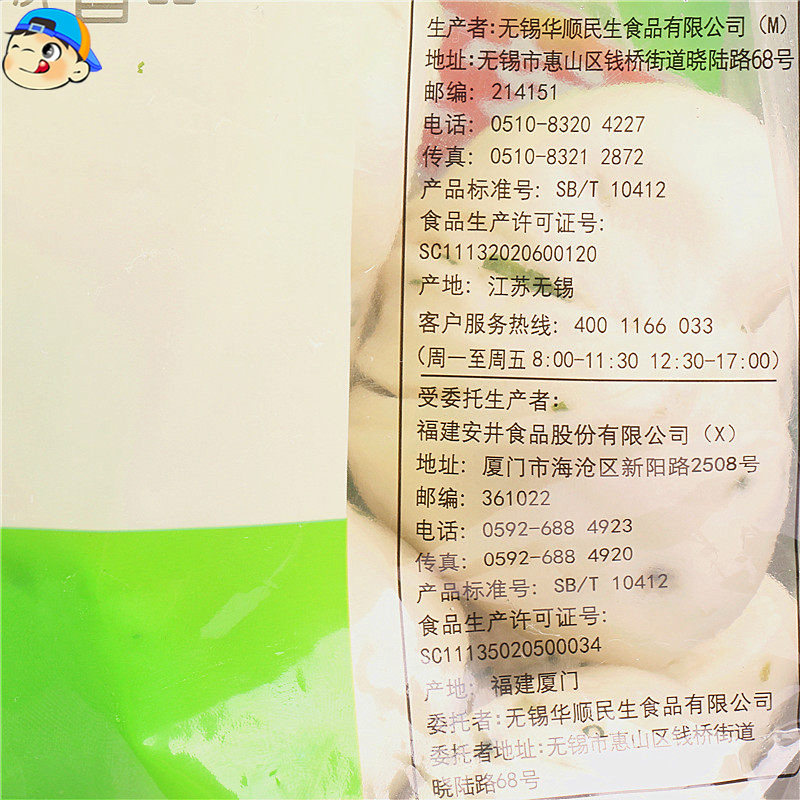 生产者:无锡华顺民生食品有限公司(M)
地址:无锡市惠山区钱桥街道晓陆路68号
邮编: 214151
电话: 0510-8320 4227
传真: 0510-8321 2872
产品标准号: SB/T 10412
食品生产许可证号:
SC11132020600120
产地: 江苏无锡
客户服务热线: 400 1166 033
(周一至周五8:00-11:30 12:30-17:00)
受委托生产者:
福建安井食品股份有限公司(X)
地址: 厦门市海沧区新阳路2508号
邮编: 361022
电话: 0592-688 4923
传真: 0592-688 4920
产品标准号: SB/T 10412
食品生产许可证号:
SC11135020500034
产地: 福建厦门
委托者:无锡华顺民生食品有限公司
委托者地址:无锡市惠山区钱桥街道
晓陆路68号